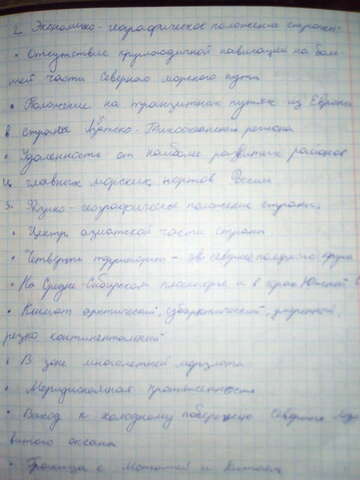 2. Экономико-географическое положение страны:
• Отсутствие круглогодичной навигации на боль-
шей части Северного морского пути
• Положение на транзитных путях из Европы
в страны Азиатско-Тихоокеанского региона
• Удаленность от наиболее развитых районов
и главных морских портов России
3. Физико-географическое положение страны,
• Центр азиатской части страны
• Четверть территории - за северным полярным кругом
• На Средне-Сибирском плоскогорье и в горах Южной
• Климат арктический, субарктический, умеренный,
резко континентальный
• В зоне многолетней мерзлоты
• Меридиональная протяженность
• Выход к холодному побережью Северного Ледо
витого океана
• Граница с Монголией и Китаем